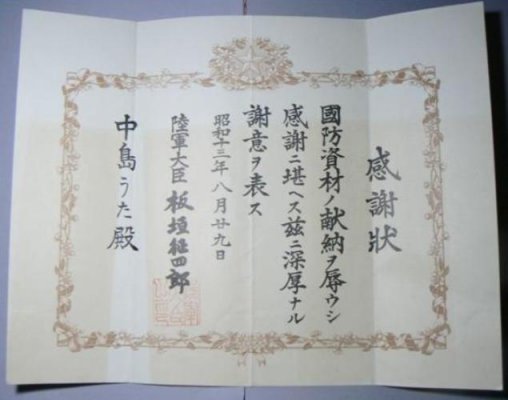 感謝狀
國防資材ノ献納ヲ辱ウシ
感謝ニ堪ヘス茲ニ深厚ナル
謝意ヲ表ス
昭和十三年八月廿九日
陸軍大臣 板垣征四郎
中島うた殿